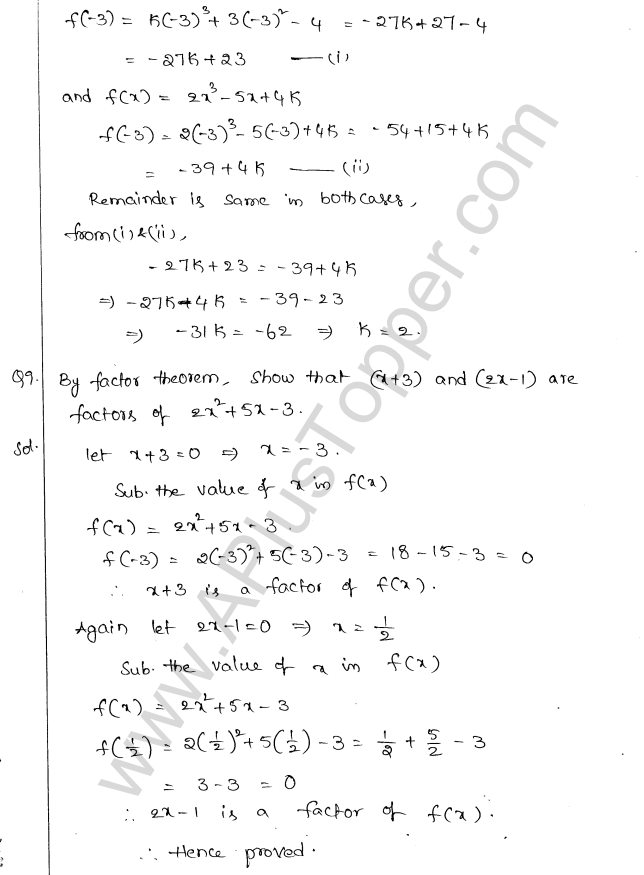 f(-3) = K(-3)³ + 3(-3)² - 4 = -27K + 27 - 4
= -27K + 23 —— (i)
and f(x) = 2x³ - 5x + 4K
f(-3) = 2(-3)³ - 5(-3) + 4K = -54 + 15 + 4K
= -39 + 4K —— (ii)
Remainder is same in both cases,
from (i) & (ii),
-27K + 23 = -39 + 4K
⇒ -27K - 4K = -39 - 23
⇒ -31K = -62 ⇒ K = 2.
Q9. By factor theorem, show that (x+3) and (2x-1) are
factors of 2x² + 5x - 3.
Sol. let x+3 = 0 ⇒ x = -3.
Sub. the value of x in f(x)
f(x) = 2x² + 5x - 3.
f(-3) = 2(-3)² + 5(-3) - 3 = 18 - 15 - 3 = 0
∴ x+3 is a factor of f(x).
Again let 2x-1 = 0 ⇒ x = 1/2
Sub. the value of x in f(x)
f(x) = 2x² + 5x - 3
f(1/2) = 2(1/2)² + 5(1/2) - 3 = 1/2 + 5/2 - 3
= 3 - 3 = 0
∴ 2x-1 is a factor of f(x).
∴ Hence proved.
www.APlusTopper.com